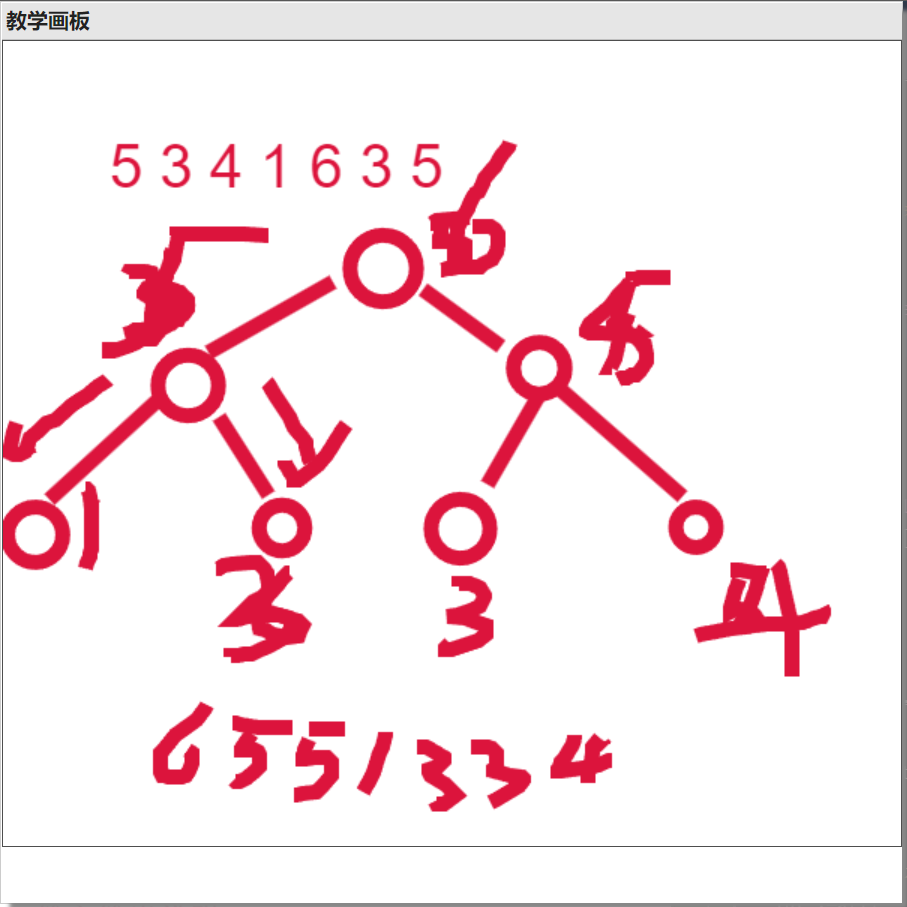 教学画板
5 3 4 1 6 3 5
6
5
5
1
3
3
4
6 5 5 1 3 3 4